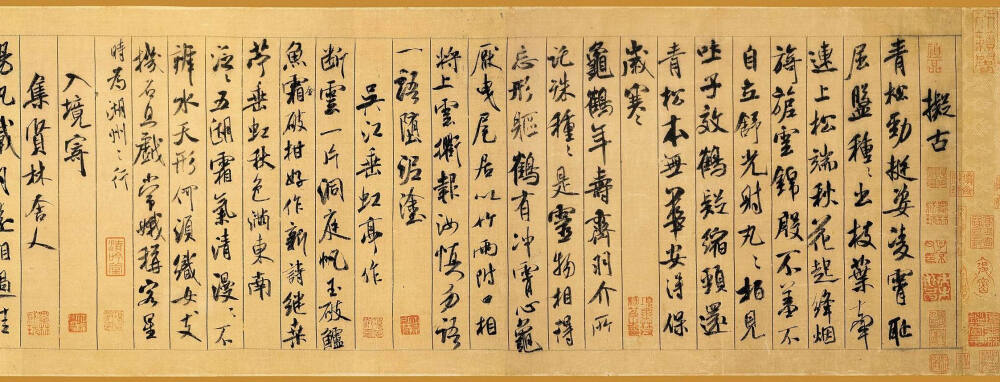 擬古
青松勁挺姿凌霄恥
屈盤種〻出枝葉牽
連上松端秋花起絳烟
旖旎雲錦殷不羞不
自立舒光射丸〻柏見
吐子效鶴疑縮頸還
青松本無華安得保
歲寒
龜鶴年壽齊羽介所
託殊種〻是靈物相得
忘形軀鶴有冲霄心龜
厭曳尾居以竹兩附口相
將上雲衢報汝慎勿語
一語墮泥塗
吳江垂虹亭作
斷雲一片洞庭帆玉破鱸
魚霜破柑好作新詩繼桑
苧垂虹秋色滿東南
泛〻五湖霜氣清漫〻不
辨水天形何須織女支
機石且戲常娥稱客星
時為湖州之行
入境寄
集賢林舍人
揚帆載月遠相過佳